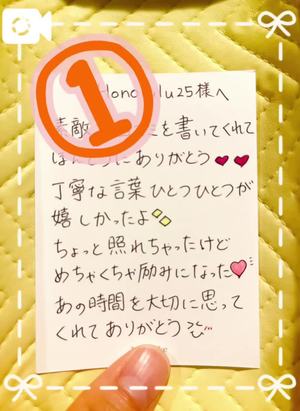 ①
lu25様へ
素敵 ミを書いてくれて
ほんとうにありがとう
丁寧な言葉ひとつひとつが
嬉しかったよ
ちょっと照れちゃったけど
めちゃくちゃ励みになった
あの時間を大切に思って
くれてありがとう